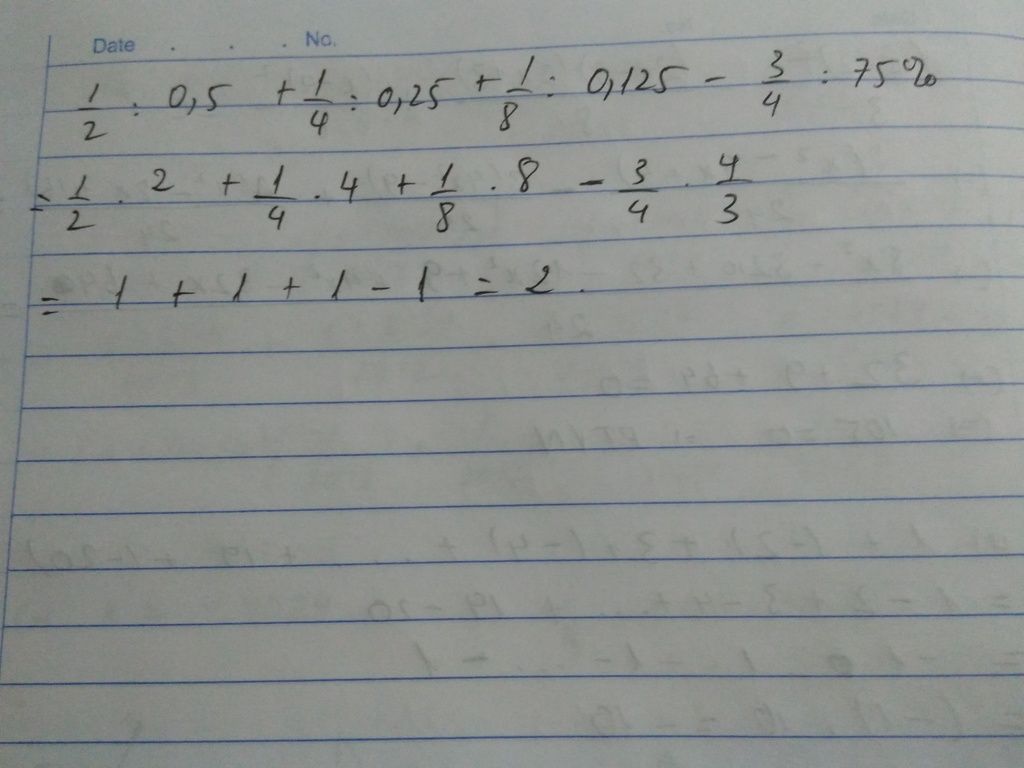 Date . . . No.
1/2 : 0,5 + 1/4 : 0,25 + 1/8 : 0,125 - 3/4 : 75%
= 1/2 . 2 + 1/4 . 4 + 1/8 . 8 - 3/4 . 4/3
= 1 + 1 + 1 - 1 = 2.